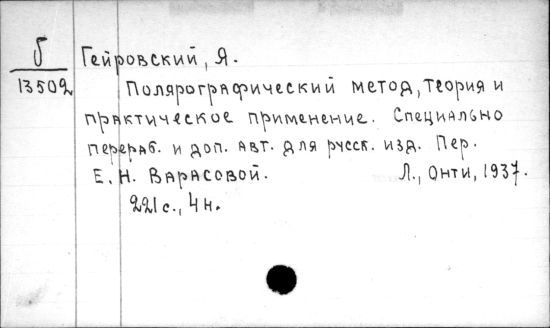 Б
13502
Гейровский, Я.
Полярографический метод, теория и
практическое применение. Специально
перераб. и доп. авт. для русск. изд. Пер.
Е. Н. Варасовой. Л., Онти, 1937.
221 с., 4 н.